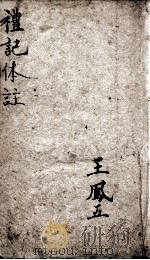 禮記体註
王鳳五